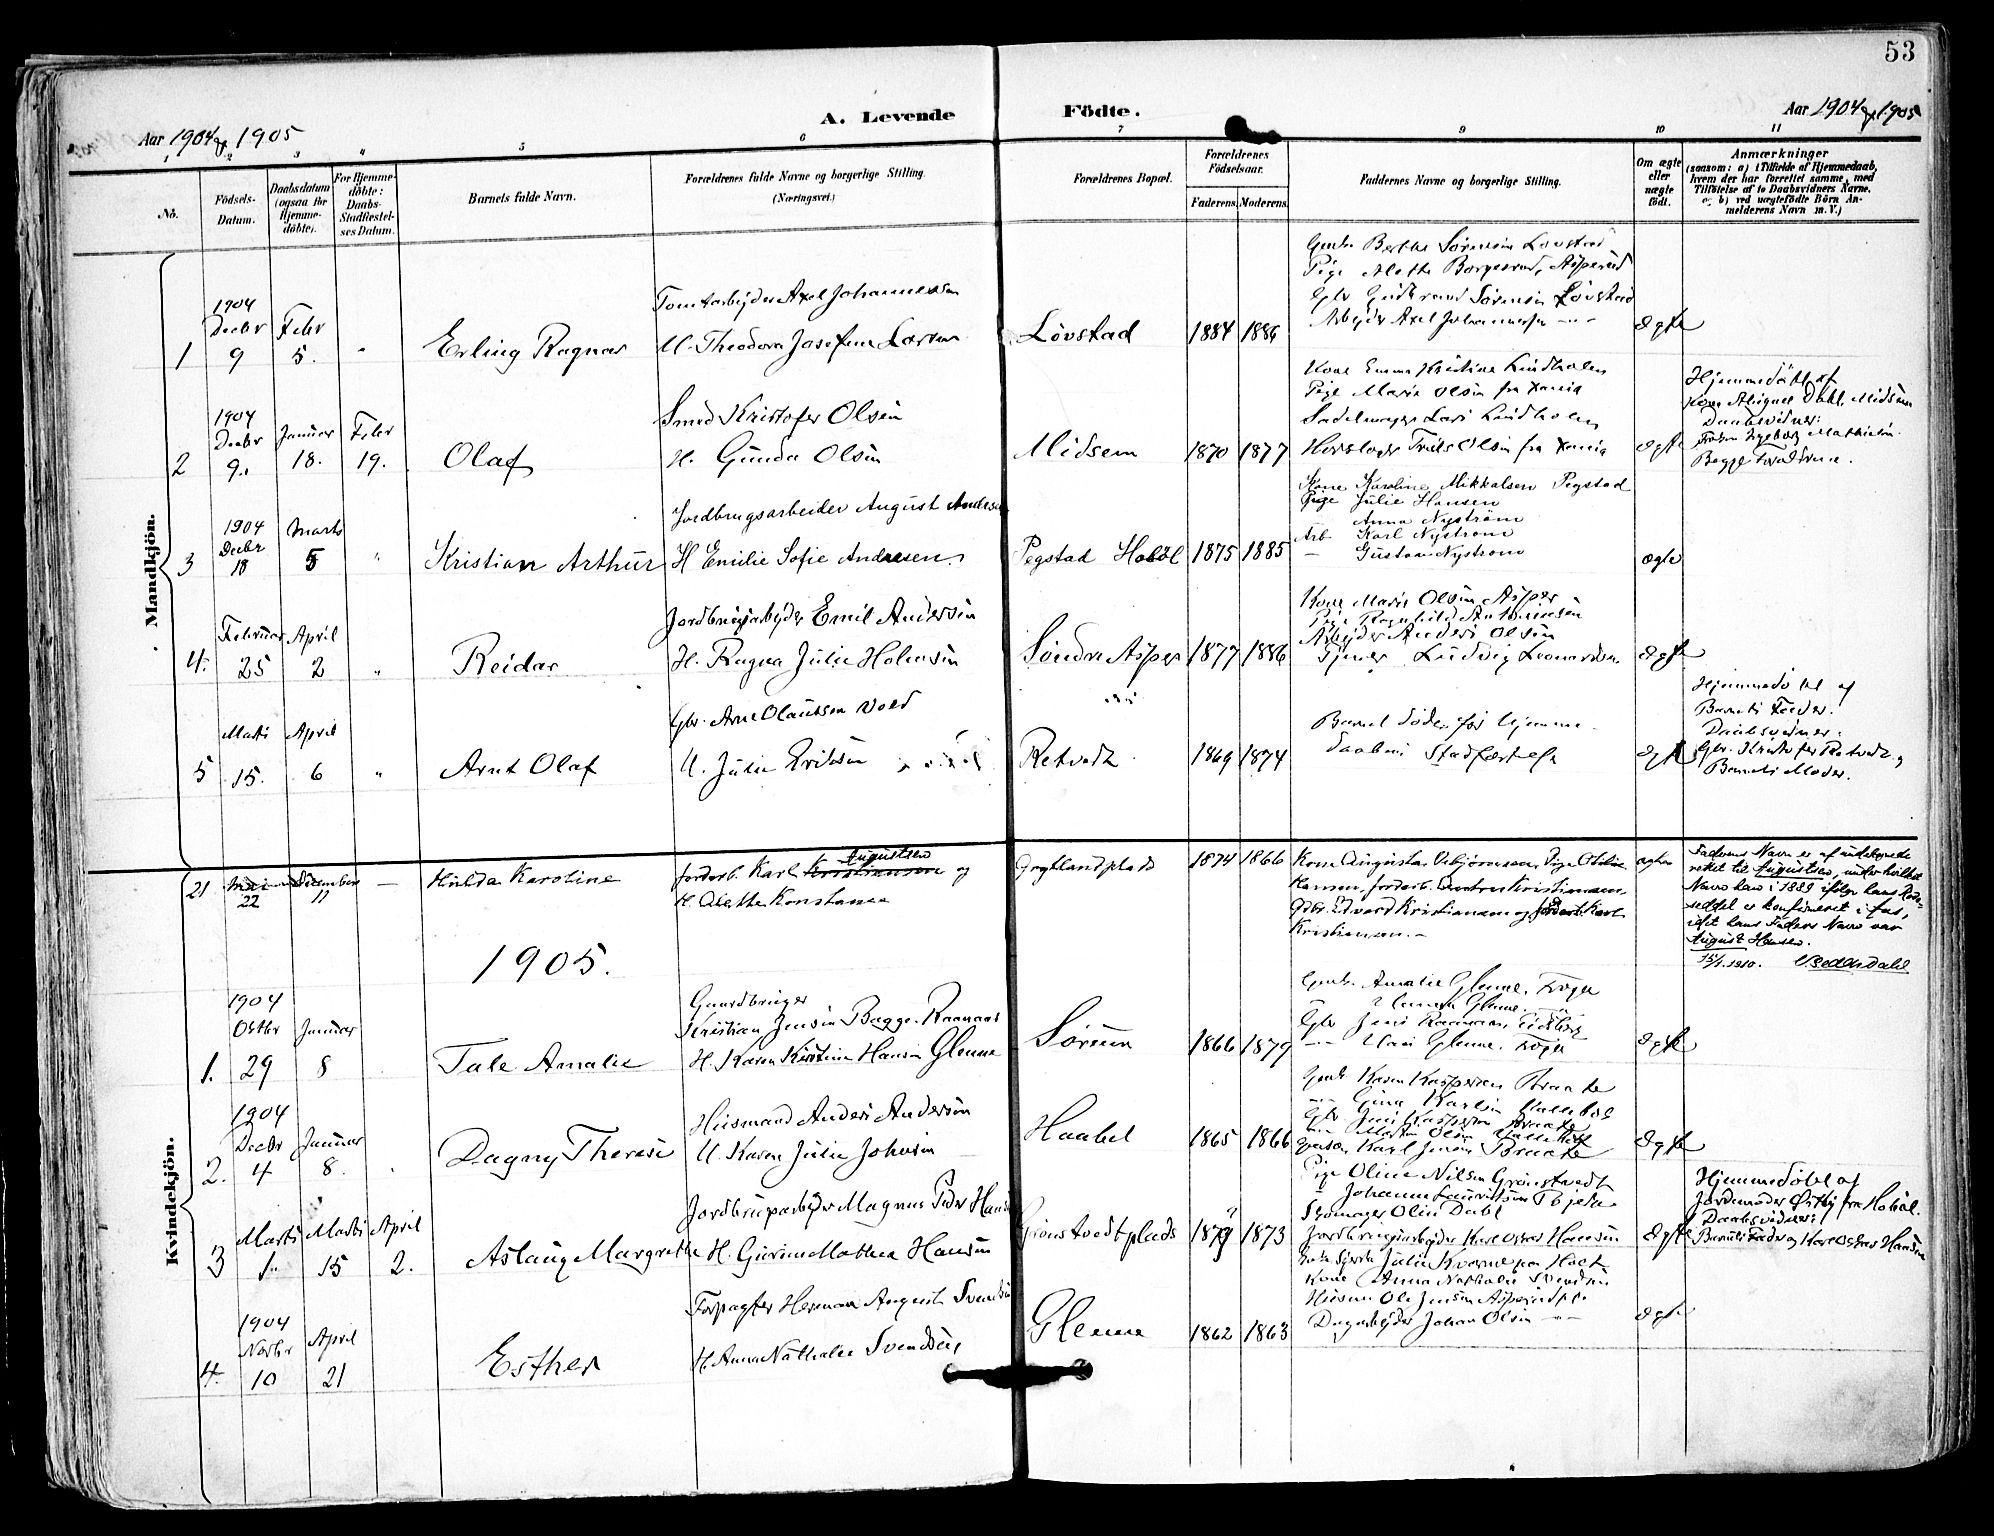 53
A. Levende Födte.
Aar 1904 og 1905
Aar 1904 og 1905
1 2 3 4 5 6 7 9 10 11
No.
Födsels-Datum.
Daabsdatum (ogsaa for Hjemme-döbte).
For Hjemme-döbte: Daabs-Stadfæstel-ses Datum.
Barnets fulde Navn.
Forældrenes fulde Navne og borgerlige Stilling.
(Næringsvei.)
Forældrenes Bopæl.
Forældrenes Födselsaar.
Faderens. Moderens.
Faddernes Navne og borgerlige Stilling.
Om ægte eller uægte födt.
Anmærkninger
(saasom: a) i Tilfælde af Hjemmedaab,
hvem der har forrettet samme, med
Tilföielse af to Daabsvidners Navne.
b) ved uægtefödte Börn An-
melderens Navn m. V.)
Mandkjön.
1 1904 Decbr 9 Febr 5. " Erling Ragnar
Tomtarbeyder Axel Johannessen
H. Theodora Josefine Larsen
Lövstad 1884 1886
Gmk. Berthe Sørensen Lövstad
Pige Alette Borgersrud, Asperud
Gbr Gudbrand Sörensen Lövstad
Arbeyder Axel Johannessen
ægte
2 1904 Decbr 9. Januar 18. Febr 19. Olaf
Smed Kristofer Olsen
H. Gunda Olsen
Midsem 1870 1877
Kone Emma Kristine Lindholm
Pige Marie Olsen fra Xania
Sadelmager Lars Lindholm
Hovslager Troels Olsen fra Xania
ægte
Hjemmedöbt af
Kone Dahl, Midsem
Daabsvidner:
Ingeborg Mathisen.
Begge Forældrene.
3 1904 Decbr 18 Marts 5 " Kristian Arthur
Jordbrugsarbeider August Andersen
H Emilie Sofie Andresen.
Pegstad Hobøl 1875 1885
Kone Karoline Mikkalsen Pegstad
Pige Julie Hansen
— Anna Nyström
Arb Karl Nystrøm
— Gustav Nystrøm
ægte
4. Februar 25 April 2 " Reidar
Jordbrugsarbeyder Emil Andersen
H. Ragna Julie Holmsen
Søndre Asper 1877 1886
Kone Marie Olsen Asper
Pige Ragnhild Antonsen
Arbeyder Anders Olsen
Tjener Ludvig Leonardsen.
ægte
5 Marts 15. April 6 " Arnt Olaf
Gbr. Arne Olautsen Vold
H. Julie Eriksen
Retvedt 1869 1874
Barnet döde før Hjemme-
daabens Stadfæstelse
ægte
Hjemmedöbt af
Barnets Fader.
Daabsvidner:
Gbr. Kristofer Retvedt og
Barnets Moder.
21 Mai 22 December 11 — Hulda Karoline
Jordarb. Karl Kristiansen Augustsen og
H. Alette Konstanse
Grytlandplads 1874 1866
Kone Augusta Esbjørnsen, Pige Othilie
Hansen, Jordarb. Anton Kristiansen,
Gdbr. Edvard Kristiansen og Jordarb. Karl
Kristiansen. —
ægte
Faderens Navn er af undertegnede
rettet til Augustsen, under hvilket
Navn han i 1889 ifølge hans Daabs-
seddel er konfirmeret i
idet hans Faders Navn var
August Hansen.
15/1. 1910.
1905.
Kvindekjön.
1. 1904 Oktbr 29 Januar 8 Tale Amalie
Gaardbruger
Kristian Jensen Bagge-Raanaas
H. Karen Kirstine Hansen Glenne
Sörum 1866 1879
Gmk. Amalie Glenne, Kroger
Glenne.
Gbr Jens Raanaas, Eidsberg
— Hans Glenne, Kroger
ægte
2. 1904 Decbr 4 Januar 8. Dagny Therese
Husmand Anders Andersen
H. Karen Julie Johnsen
Haabel 1865 1866
Gmk Karen Kaspersen Braate
— Gina Karlsen Hallebøl
Gbr Jens Kaspersen Braate
— Martin Olsen Hallebøl
Karl Jensen Braate
ægte
3 Marts 1. Marts 15 April 2. Aslaug Margrethe
Jordbrugsarbeyder Magnus Peder Hansen
H. Gurine Mathea Hansen
Grönstvedtplads 1879 1873
Pige Oline Nilsen Grönstvedt
— Johanne Lauritsen Tøjeba
Skomager Olin Dahl
Jordbrugsarbeyder Karl Oskar Hansen
ægte
Hjemmedöbt af
Jordemoder Østby fra Hobøl.
Daabsvidner:
Barnets Fader og Karl Oskar Hansen
4. 1904 Novbr 10 April 21 Esther
Forpagter Herman August Svendsen
H. Anna Nathalie Svendsen,
Glenne 1862 1863
Julie Kverne paa Holt
Kone Anna Nathalie Svendsen
Husm Ole Jensen Asperudpl.
Dagarbeyder Johan Olsen
ægte